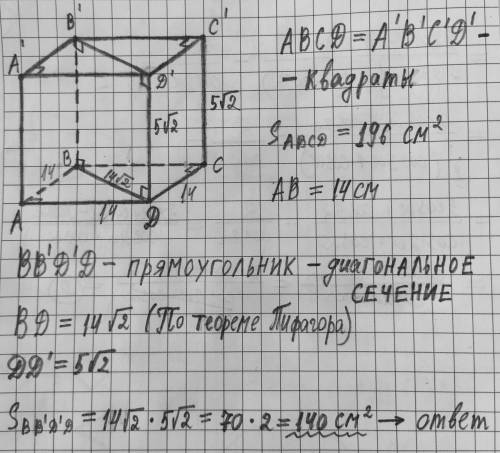 B' C'
A' D'
5√2 5√2
14 B 14√2 C
14
A 14 D
ABCD = A'B'C'D' -
- квадраты
S ABCD = 196 см²
AB = 14 см
BB'D'D - прямоугольник - диагональное
сечение
BD = 14√2 (По теореме Пифагора)
DD' = 5√2
S BB'D'D = 14√2 · 5√2 = 70 · 2 = 140 см² → ответ